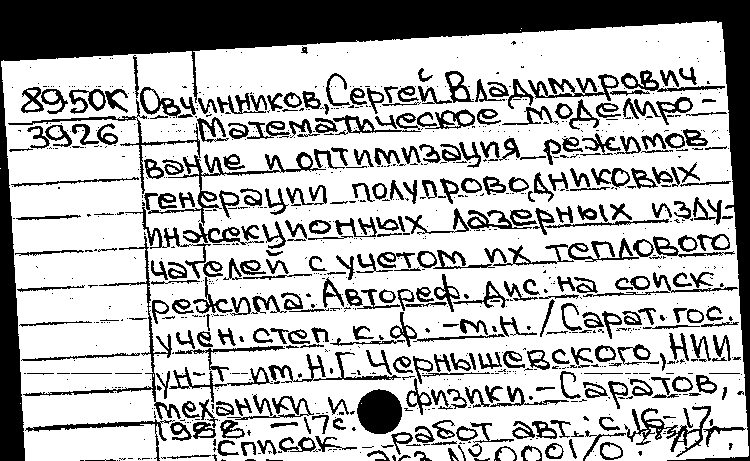 8950К Овчинников, Сергей Владимирович.
3926 Математическое моделиро-
вание и оптимизация режимов
генерации полупроводниковых
инжекционных лазерных излу-
чателей с учетом их теплового
режима: Автореф. дис. на соиск.
учен. степ. к.ф.-м.н. / Сарат. гос.
ун-т им. Н.Г. Чернышевского, НИИ
механики и физики. - Саратов,
1988. - 17с.
Список работ авт.: с. 16-17.
экз. №0001/0.